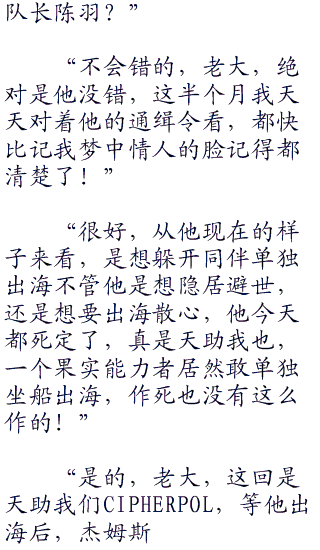 队长陈羽？”
“不会错的，老大，绝
对是他没错，这半个月我天
天对着他的通缉令看，都快
比记我梦中情人的脸记得都
清楚了！”
“很好，从他现在的样
子来看，是想躲开同伴单独
出海不管他是想隐居避世，
还是想要出海散心，他今天
都死定了，真是天助我也，
一个果实能力者居然敢单独
坐船出海，作死也没有这么
作的！”
“是的，老大，这回是
天助我们CIPHERPOL，等他出
海后，杰姆斯